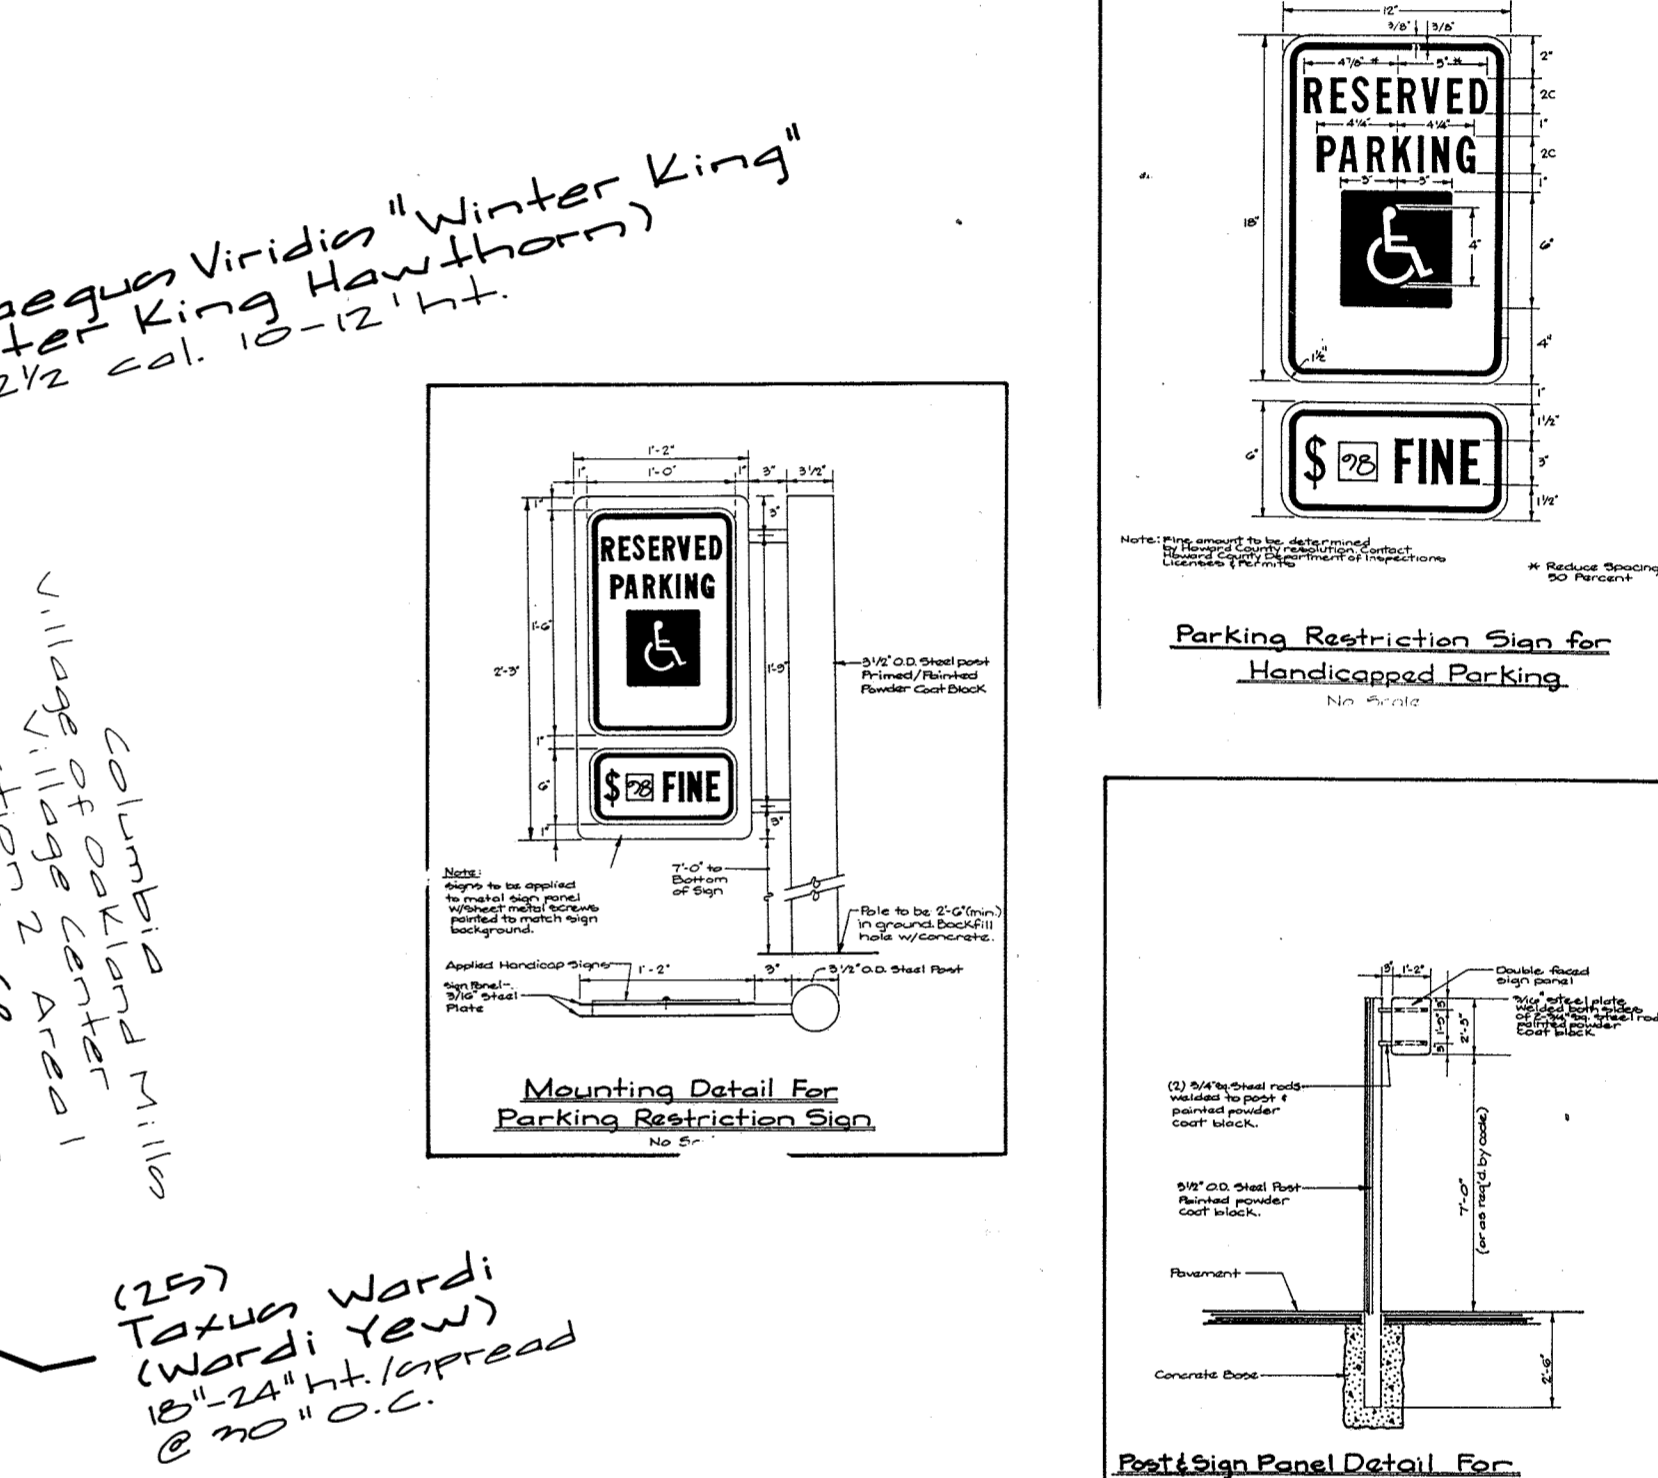 aegus Viridis "Winter King"
ter King Hawthorn)
2½ cal. 10-12' ht.
Columbia
Village of Oakland Mills
Village Center
tion 2 Area 1
(25)
Taxus Wardi
(Wardi Yew)
18"-24" ht./spread
@ 30" O.C.
1'-2"
1" 1'-0" 1" 3" 3 1/2"
1"
3"
RESERVED
PARKING
1'-6"
2'-3"
1'-9"
3 1/2" O.D. Steel post
Primed/Painted
Powder Coat Black
1"
$ 98 FINE
6"
3"
1"
Note:
Signs to be applied
to metal sign panel
w/sheet metal screws
painted to match sign
background.
7'-0" to
Bottom
of Sign
Pole to be 2'-6" (min.)
in ground. Backfill
hole w/concrete.
Applied Handicap Signs
1'-2" 3" 3 1/2" O.D. Steel Post
Sign Panel-
3/16" Steel
Plate
Mounting Detail For
Parking Restriction Sign
No
12"
3/8" 3/8"
4 7/8" * 5" *
RESERVED
4 1/4" 4 1/4"
PARKING
3" 3"
18"
4"
2"
2C
1"
2C
1"
6"
4"
1 1/2"
1"
6"
$ 98 FINE
1 1/2"
3"
1 1/2"
Note: Fine amount to be determined
by Howard County resolution. Contact
Howard County Department of Inspections
Licenses & Permits
* Reduce Spacing
50 Percent
Parking Restriction Sign for
Handicapped Parking
No Scale
3" 1'-2"
Double faced
sign panel
3/16" steel plate
welded both sides
of 2-3/4" sq. steel rod
painted powder
coat black
3"
1'-9"
3"
2'-3"
(2) 3/4" sq. Steel rods
welded to post &
painted powder
coat black.
3 1/2" O.D. Steel Post
Painted powder
coat black.
7'-0"
(or as req'd. by code)
Pavement
Concrete Base
2'-6"
Post & Sign Panel Detail For